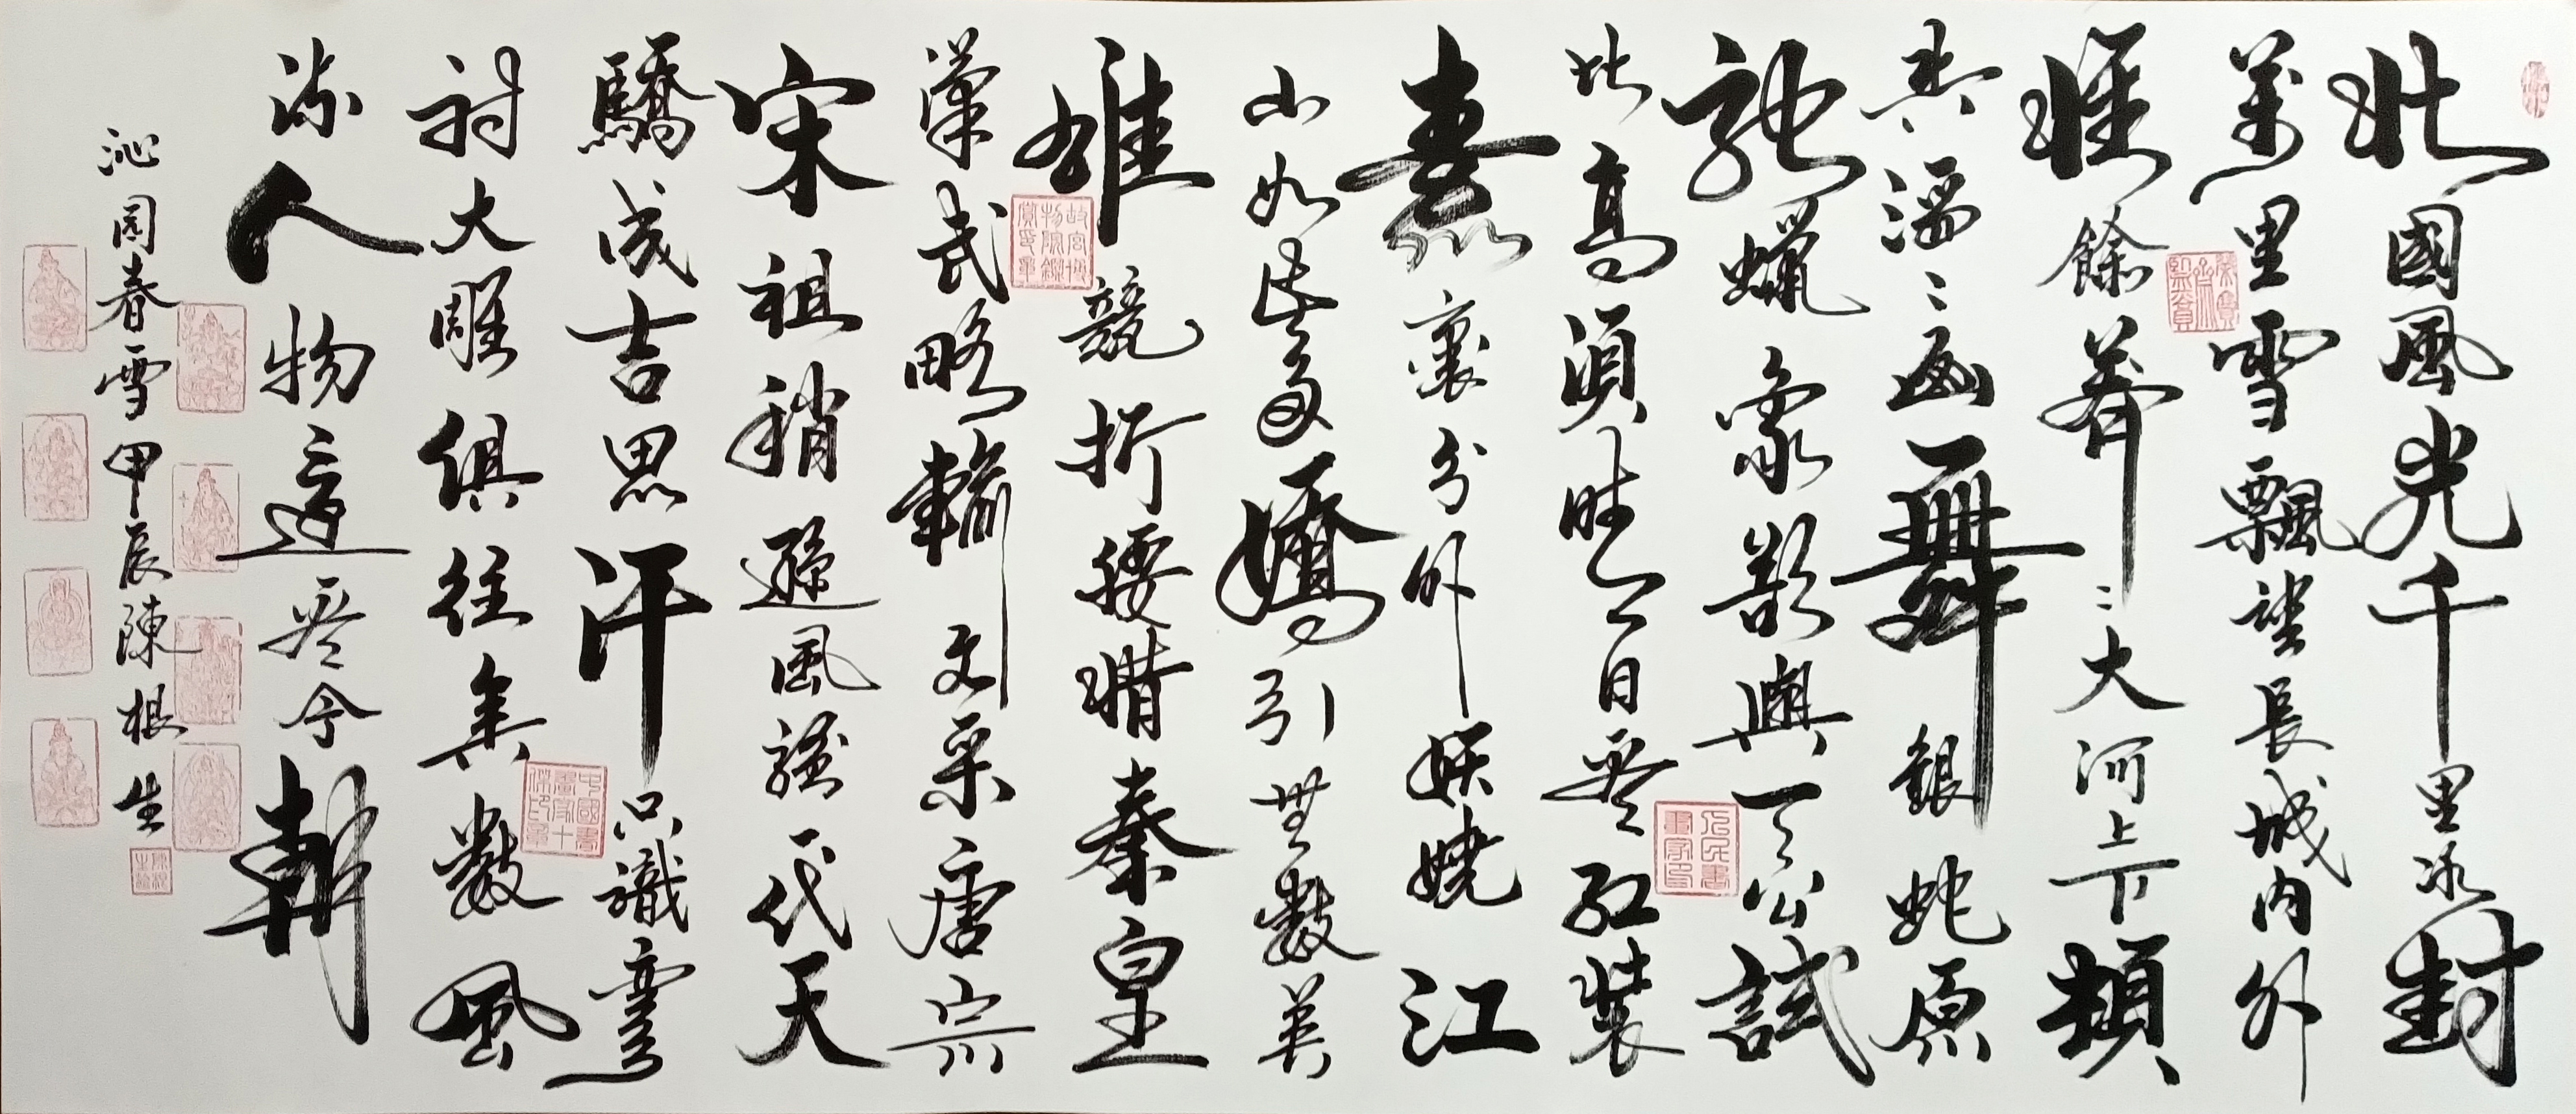 北國風光千里冰封
萬里雪飄望長城内外
惟餘莽〻大河上下頓
失滔〻山舞銀蛇原
馳蠟象欲與天公試
比高須晴日看紅裝
素裹分外妖嬈江
山如此多嬌引無數英
雄競折腰惜秦皇
漢武略輸文采唐宗
宋祖稍遜風騷一代天
驕成吉思汗只識彎
射大雕俱往矣數風
流人物還看今朝
沁園春雪甲辰陳根生
人民書畫家印